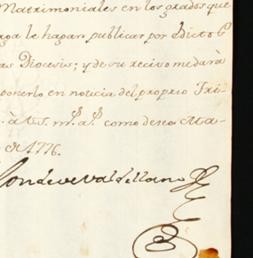 Matrimoniales en los grados que
haga le hagan publicar por Edicto
as Diocesis; y de su recivo me darà
ponerlo en noticia del proprio Tri-
à V.S. m.s a.s como deseo Ma-
1776.
Conde de Valdellano